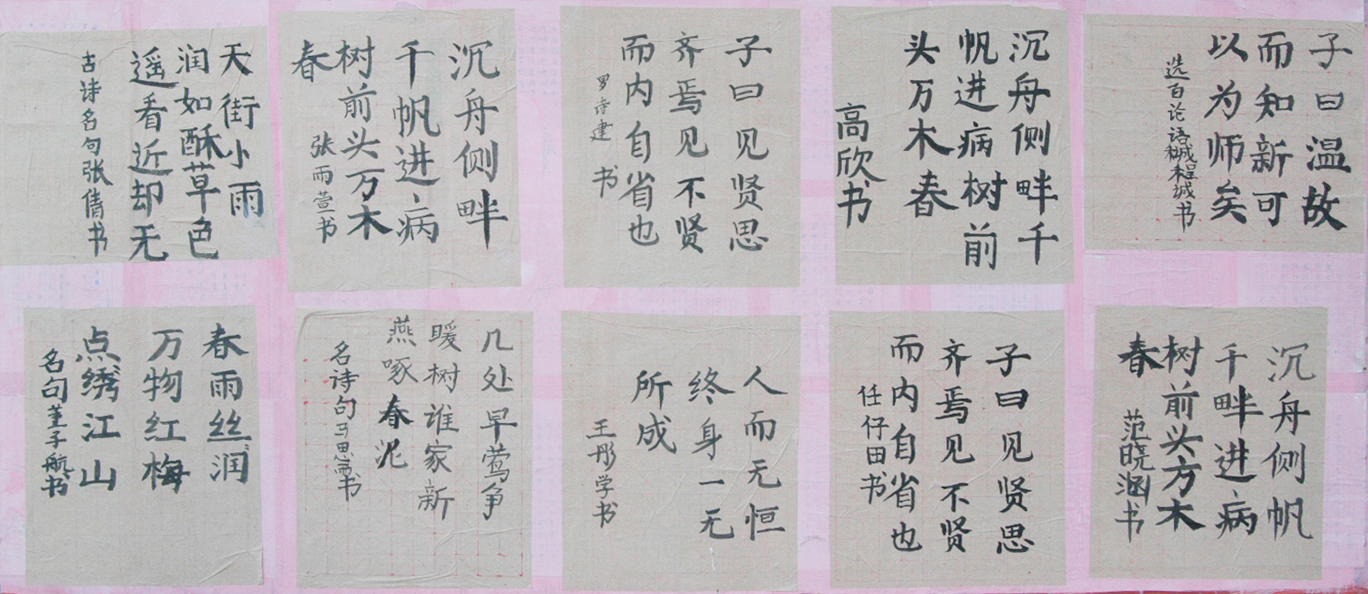 子曰温故
而知新可
以为师矣
选自论语 城书
沉舟侧畔千
帆进病树前
头万木春
高欣书
子曰见贤思
齐焉见不贤
而内自省也
罗诗建 书
沉舟侧畔
千帆进病
树前头万木
春
张雨萱书
天街小雨
润如酥草色
遥看近却无
古诗名句张倩书
沉舟侧帆
千畔进病
树前头方木
春
范晓涵书
子曰见贤思
齐焉见不贤
而内自省也
任仔田书
人而无恒
终身一无
所成
王彤学书
几处早莺争
暖树谁家新
燕啄春泥
名诗句马思书
春雨丝润
万物红梅
点绣江山
名句董子航书